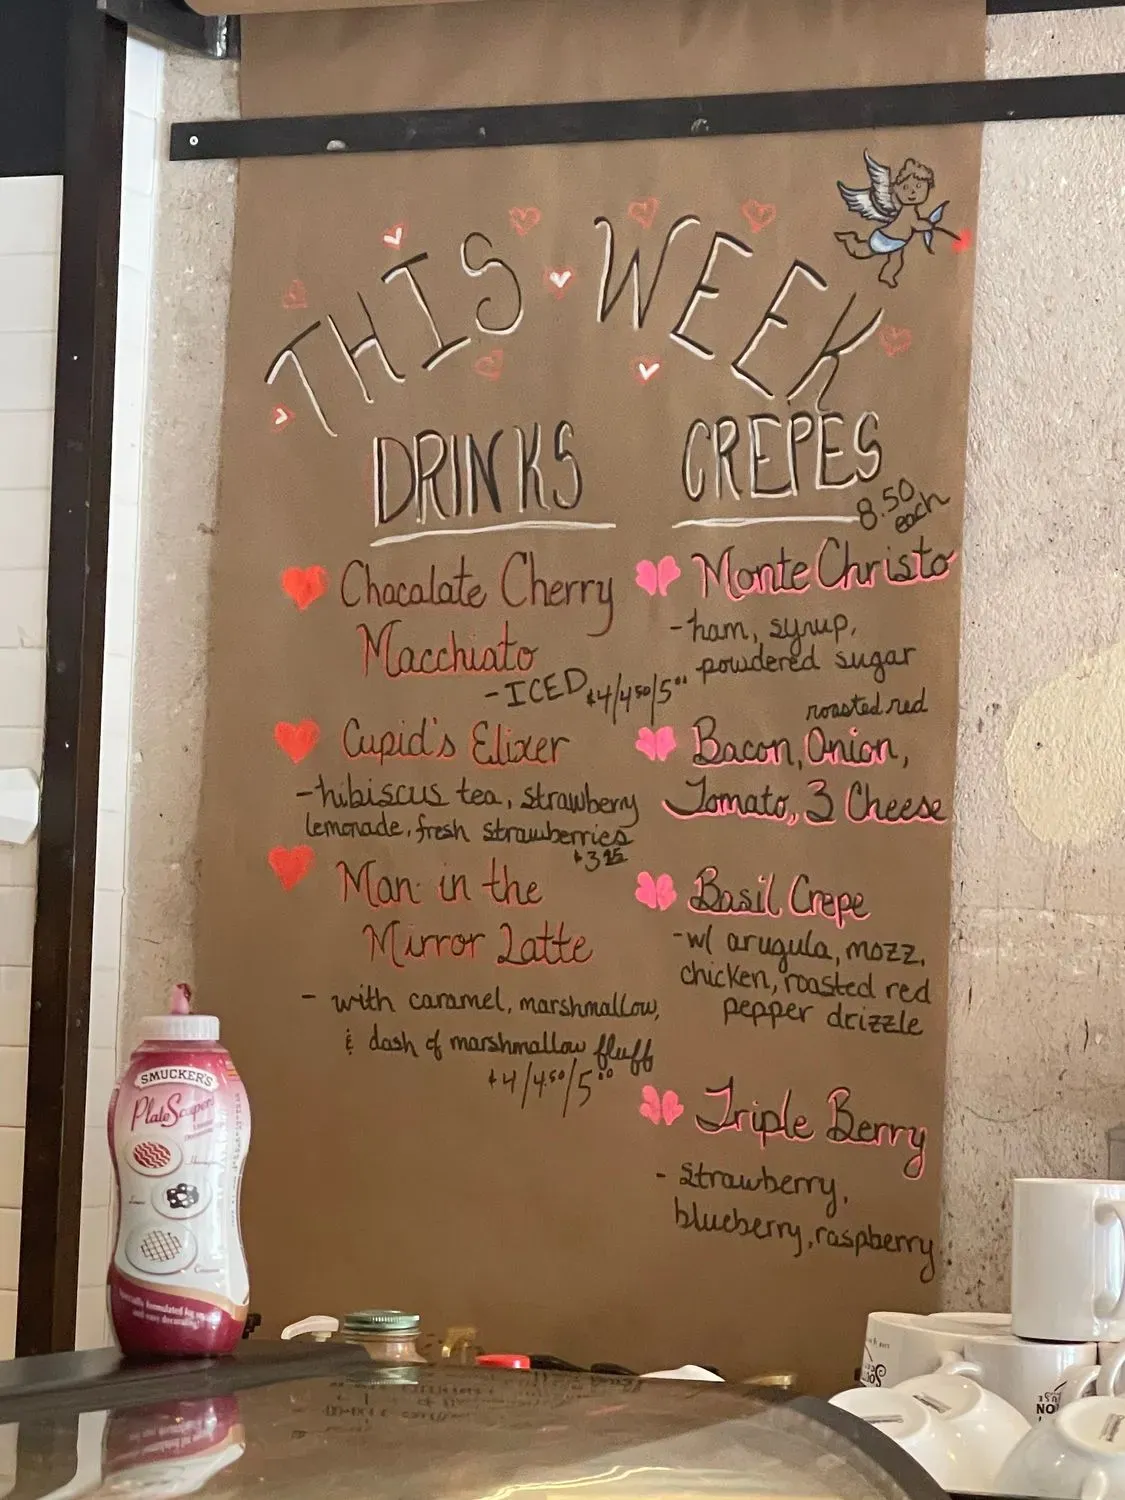 THIS WEEK
DRINKS
Chocalate Cherry
Macchiato
- ICED $4/4.50/5.00
Cupid's Elixer
- hibiscus tea, strawberry
lemonade, fresh strawberries
$3.25
Man in the
Mirror Latte
- with caramel, marshmallow,
& dash of marshmallow fluff
$4/4.50/5.00
CREPES
8.50
each
Monte Christo
- ham, syrup,
powdered sugar
roasted red
Bacon, Onion,
Tomato, 3 Cheese
Basil Crepe
- w/ arugula, mozz,
chicken, roasted red
pepper drizzle
Triple Berry
- Strawberry,
blueberry, raspberry
SMUCKER'S
PlateScapers